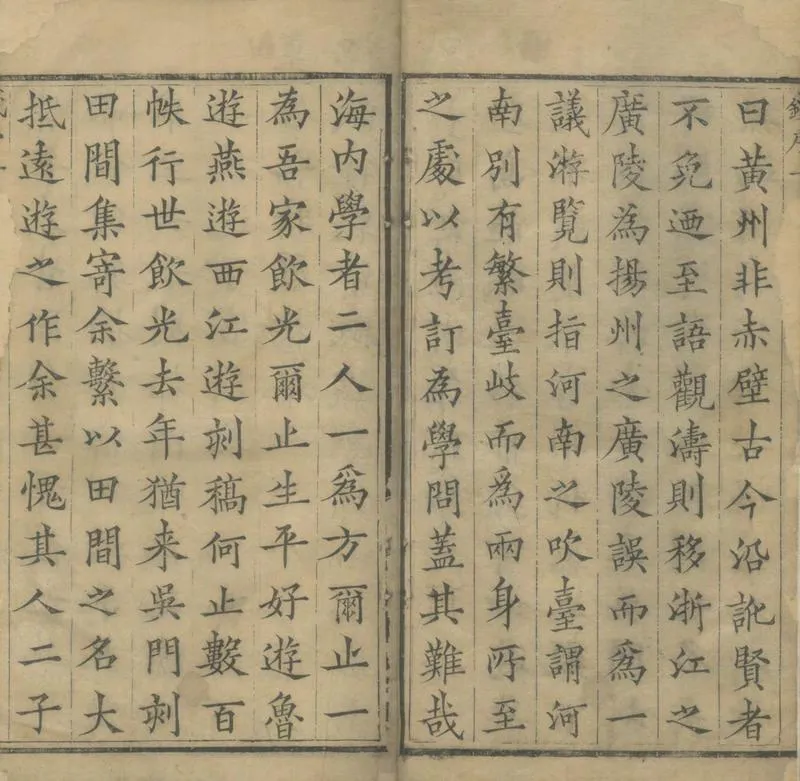 曰黃州非赤壁古今沿訛賢者
不免迺至語觀濤則移浙江之
廣陵為揚州之廣陵誤而為一
議游覽則指河南之吹臺謂河
南別有繁臺岐而為兩身所至
之處以考訂為學問蓋其難哉
海內學者二人一爲方爾止一
為吾家飲光爾止生平好遊魯
遊燕遊西江遊刻稿何止數百
帙行世飲光去年猶来吳門刻
田間集寄余繫以田間之名大
抵遠遊之作余甚愧其人二子